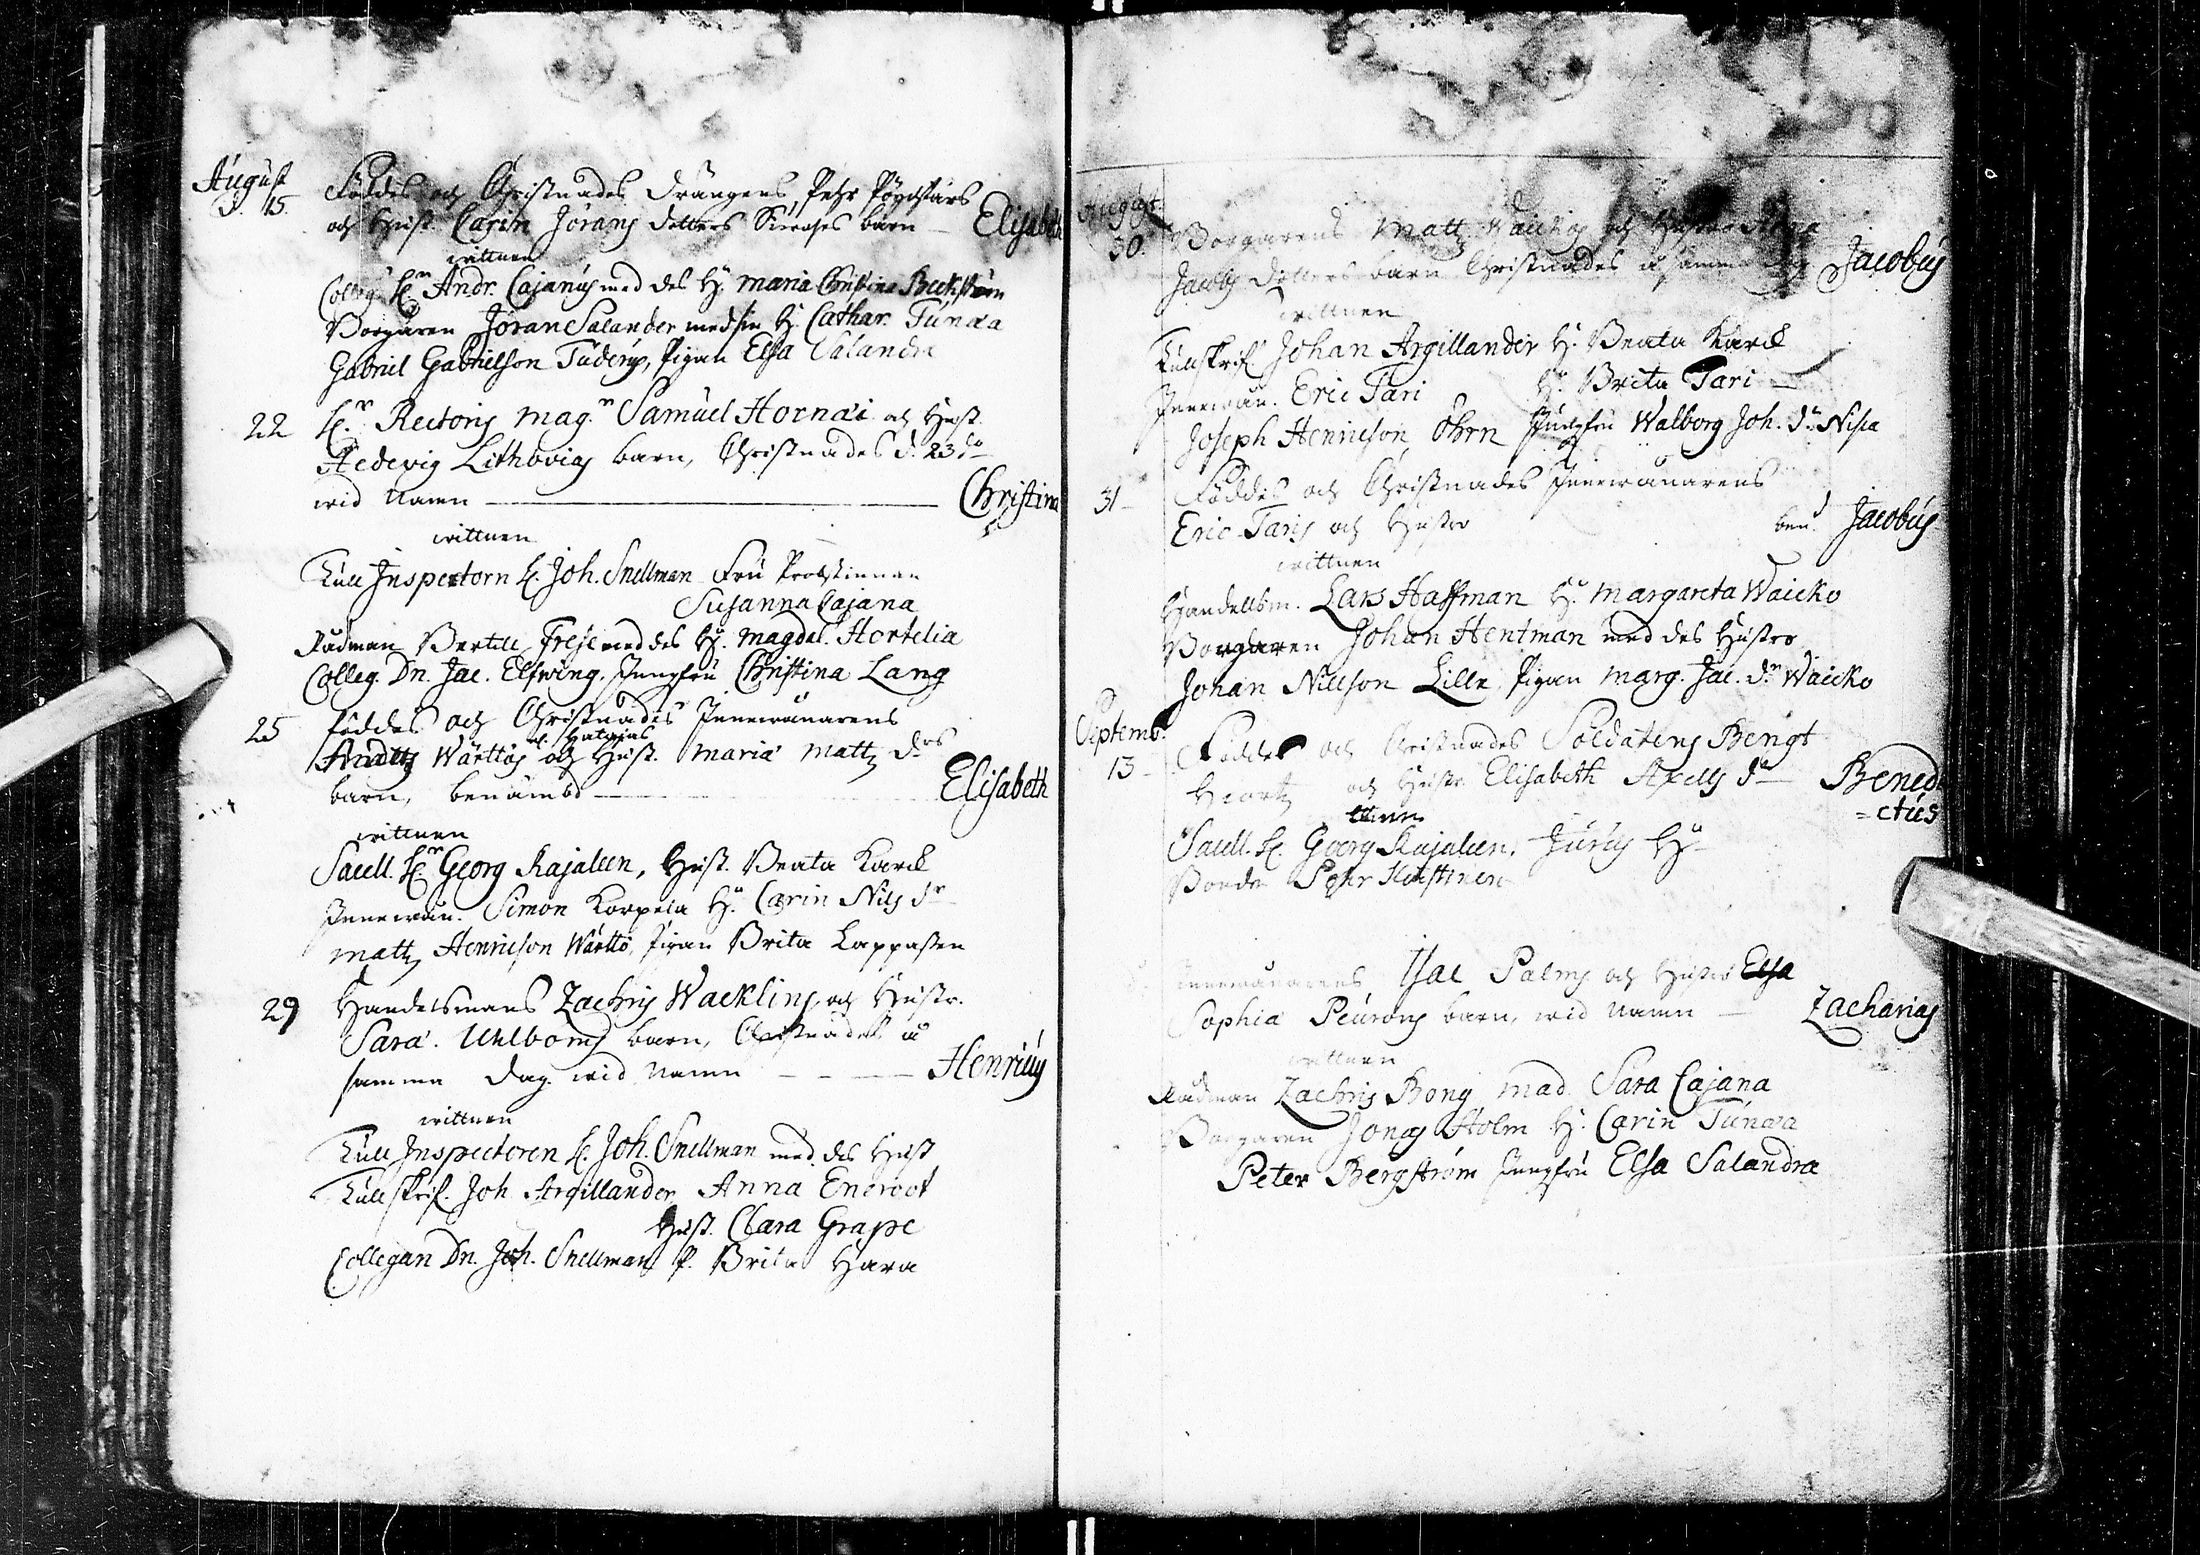 August
d. 15. Föddes och Christnades Drängens, Pehr
och Hust. Carin Jörans dotters barn — Elisabeth
wittnen
Colleg. Hr Andr. Cajanus med des H. Maria Christina Beckström
Borgaren Jöran Salander med sin H. Cathar. Tunæa
Gabriel Gabrielson Tuderus, Pigan Elsa Salandra
22 Hr. Rectoris Magr Samuel Hornæi och Hust.
Hedevig Lithovias barn, Christnades d. 23 do
wid Namn — Christina
wittnen
Tull Inspectorn H. Joh. Snellman Fru Probstinnan
Susanna Cajana
Rådman Bertill Freje med des H. Magdal. Hortelia
Colleg. Dn. Jac. Elfwing. Jungfru Christina Lang
25 föddes och Christnades Innewånarens
Wärttös och Hust. Maria Matts drs
barn, benämbd — Elisabeth
wittnen
Sacell. Hr Georg Kajalen, Hust. Beata Karck
Innewån. Simon Korpela H. Carin Nils dr
Matts Henricson Wärttö, Pigan Brita Lappassen
29 Handelsmans Zachris Wacklins och Hustr.
Sara Uhlboms barn, Christnades å
samma dag wid Namn — Henricus
wittnen
Tull Inspectoren H. Joh. Snellman med des Hust
Tullskrif. Joh Argillander Anna Eneroot
Hust. Clara Grape
Collegan Dn. Joh. Snellman P. Brita Hara
August.
30. Borgarens Matts Waickos och Hustro
Jacobs Dotters barn Christnades å samma dag Jacobus
wittnen
Tullskrif Johan Argillander H. Beata Karck
Innewån. Eric Tari H. Brita Tari
Joseph Henricson Öhrn Jungfru Walborg Joh. dr Nisia
31 Föddes och Christnades Innewånarens
Eric Taris och Hustro ben. Jacobus
wittnen
Handelsm. Lars Haffman H. Margareta Waicko
Borgaren Johan Hentman med des Hustro
Johan Nillson Lille Pigan Marg. Jac. dr Waicko
Septemb.
13 Föddes och Christnades Soldatens Bengt
Hiorts och Hustr. Elisabeth Axells dr — Benedi
=ctus
Sacell. H. Georg Kajalen,
Bonde Pehr
Innewånarens Isac Palms och Hustro Elsa
Sophia Peurons barn, wid Namn — Zacharias
wittnen
Rådman Zachris Bong Mad. Sara Cajana
Borgaren Jonas Holm H. Carin Tunæa
Peter Bergström Jungfru Elsa Salandra